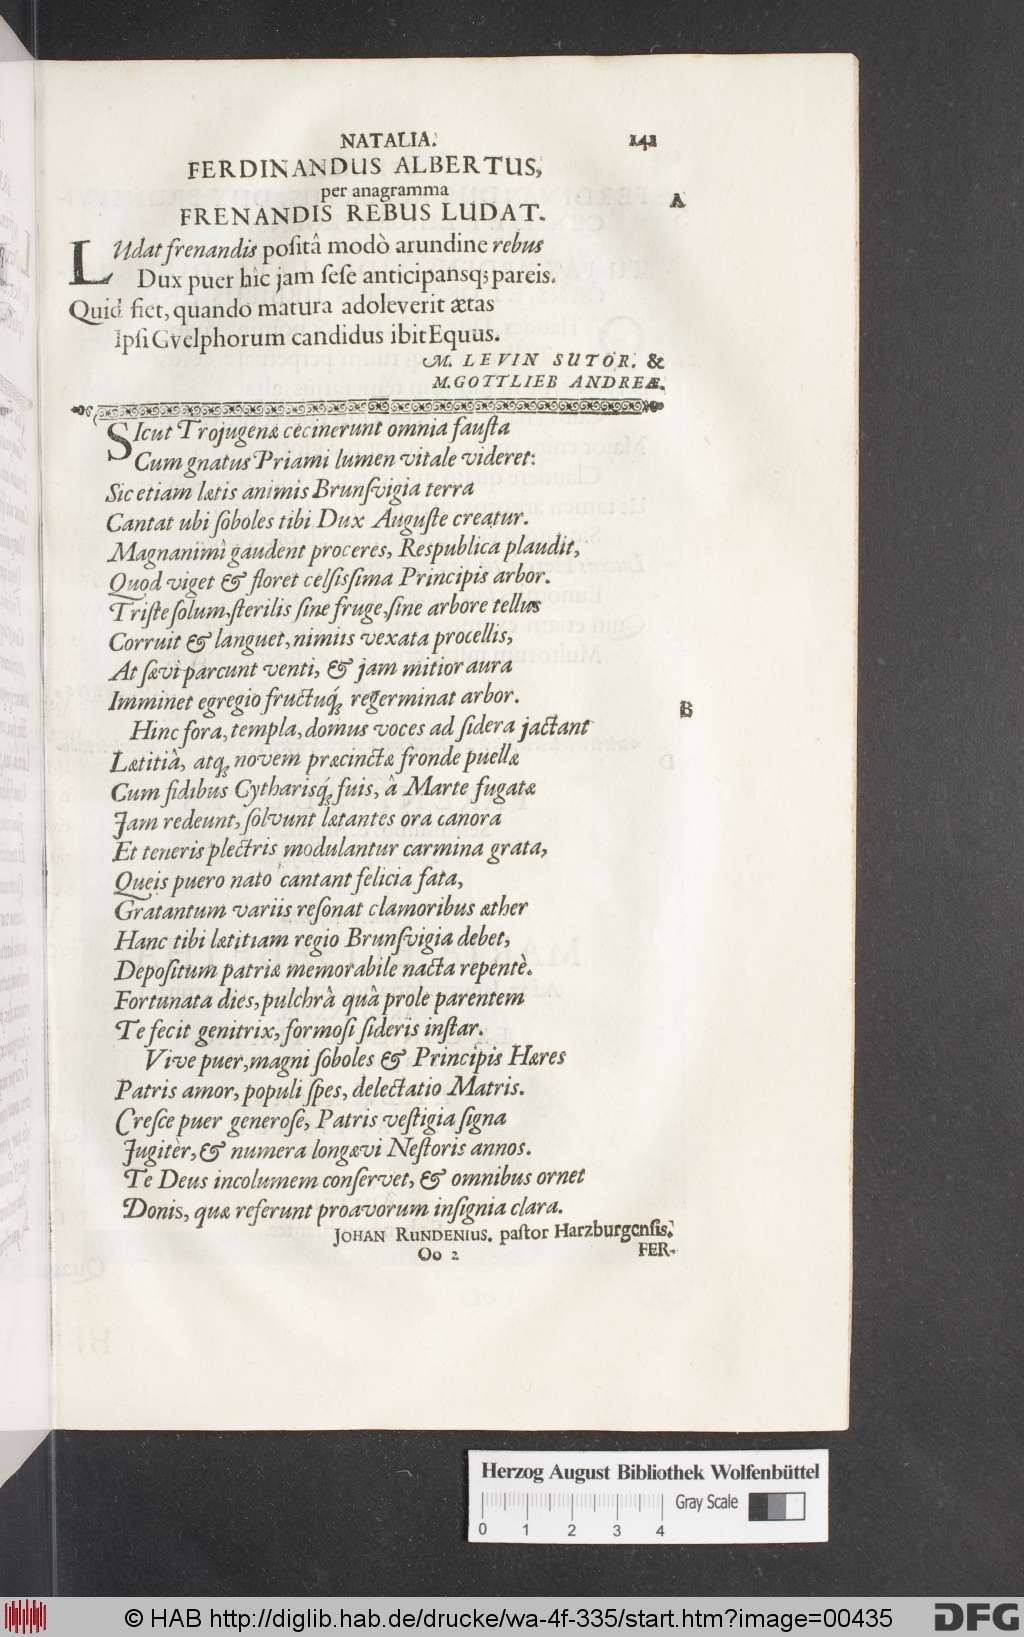 NATALIA. 141
FERDINANDUS ALBERTUS,
per anagramma
FRENANDIS REBUS LUDAT.
A
LUdat frenandis poſitâ modò arundine rebus
Dux puer hîc jam ſeſe anticipansq; pareis.
Quid fiet, quando matura adoleverit ætas
Ipſi Gvelphorum candidus ibit Equus.
M. LEVIN SUTOR. &
M. GOTTLIEB ANDREÆ.
SIcut Trojugenæ cecinerunt omnia fauſta
Cum gnatus Priami lumen vitale videret:
Sic etiam lætis animis Brunſvigia terra
Cantat ubi ſoboles tibi Dux Auguſte creatur.
Magnanimi gaudent proceres, Reſpublica plaudit,
Quod viget & floret celſisſima Principis arbor.
Triſte ſolum, ſterilis ſine fruge, ſine arbore tellus
Corruit & languet, nimiis vexata procellis,
At ſævi parcunt venti, & jam mitior aura
Imminet egregio fructuq́; regerminat arbor.
B
Hinc fora, templa, domus voces ad ſidera jactant
Lætitiâ, atq; novem præcinctæ fronde puellæ
Cum fidibus Cytharisq́; ſuis, â Marte fugatæ
Jam redeunt, ſolvunt lætantes ora canora
Et teneris plectris modulantur carmina grata,
Queis puero nato cantant felicia fata,
Gratantum variis reſonat clamoribus æther
Hanc tibi lætitiam regio Brunſvigia debet,
Depoſitum patriæ memorabile nacta repentè.
Fortunata dies, pulchrâ quâ prole parentem
Te fecit genitrix, formoſi ſideris inſtar.
Vive puer, magni ſoboles & Principis Hæres
Patris amor, populi ſpes, delectatio Matris.
Creſce puer generoſe, Patris veſtigia ſigna
Jugitèr, & numera longævi Neſtoris annos.
Te Deus incolumem conſervet, & omnibus ornet
Donis, quæ referunt proavorum inſignia clara.
JOHAN RUNDENIUS. paſtor Harzburgenſis.
Oo 2 FER-
Herzog August Bibliothek Wolfenbüttel
Gray Scale
0 1 2 3 4
© HAB http://diglib.hab.de/drucke/wa-4f-335/start.htm?image=00435 DFG